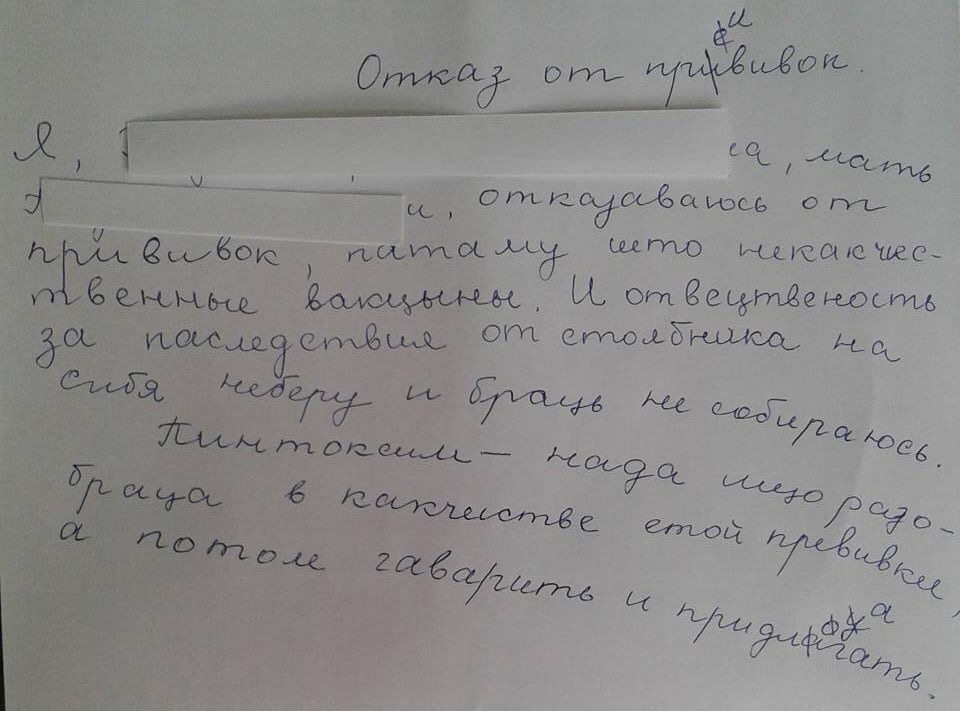 Отказ от прививок.
Я, са, мать
и, отказаваюсь от
прививок, патаму што некакчес-
твенные вакцыны. И отвецтвеность
за паследствия от столбника на
сибя неберу и браць не собираюсь.
Пинтоксим – нада ищо разо-
браца в какчистве етой прививки,
а потом гаварить и придлагать.